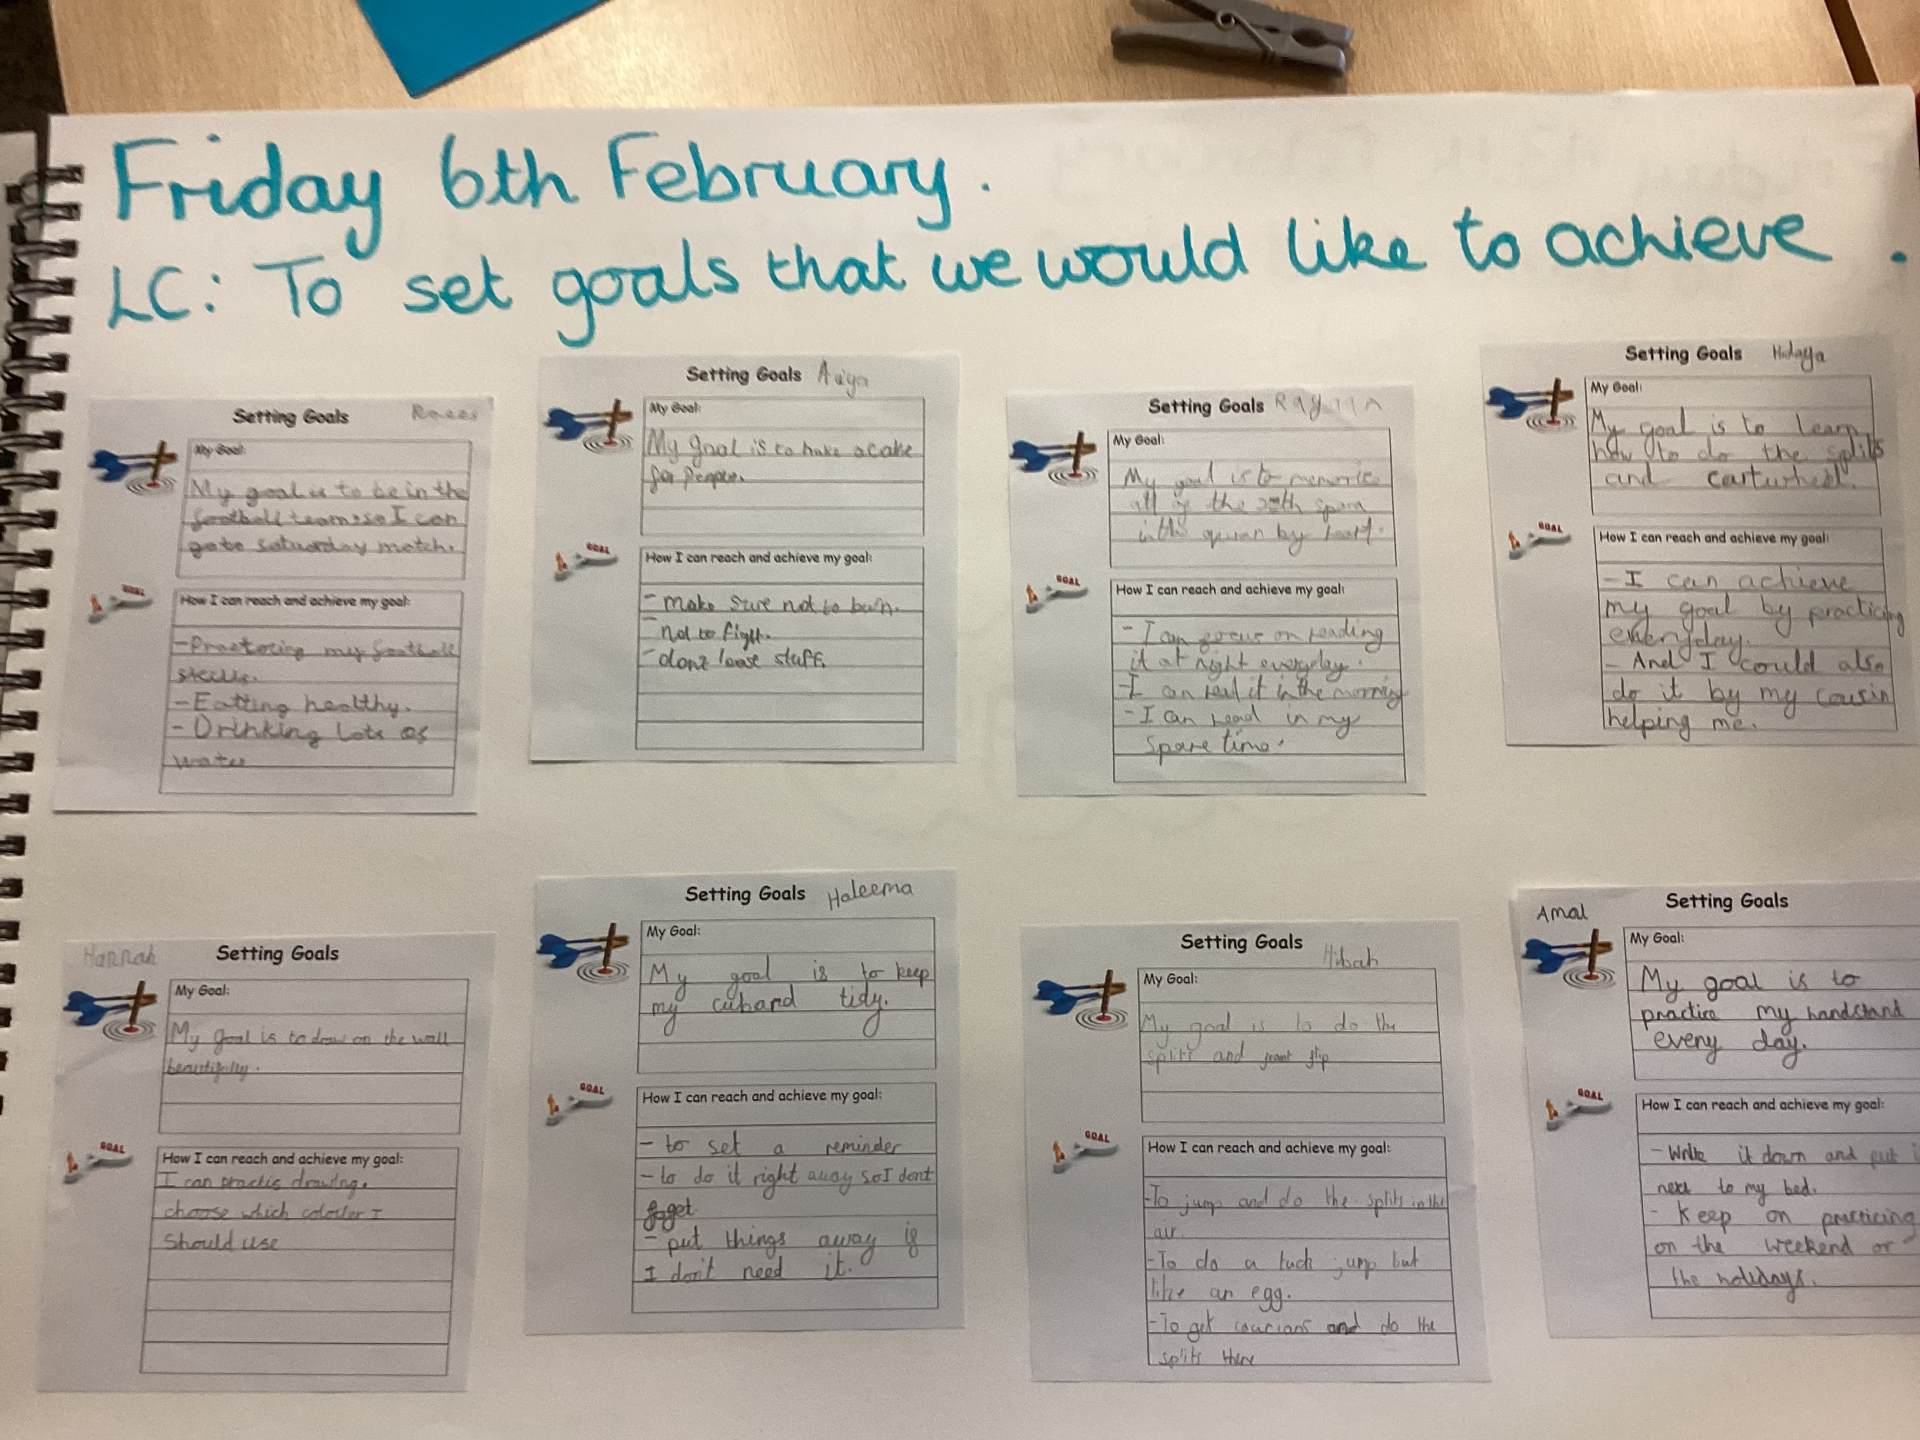 Friday 6th February.
LC: To set goals that we would like to achieve.
Setting Goals Raees
My Goal:
My goal is to be in the
football team so I can
go to saturday match.
How I can reach and achieve my goal:
- Practicing my football
skills.
- Eatting healthy.
- Drinking lots of
water
Setting Goals
My Goal:
My goal is to make a cake
for people.
How I can reach and achieve my goal:
- make sure not to burn.
- not to fight.
- dont loose stuff.
Setting Goals Rayyan
My Goal:
My goal is to memorice
all of the
in the quran by heart.
How I can reach and achieve my goal:
- I can focus on reading
it at night everyday.
- I can read it in the morning
- I can read in my
spare time.
Setting Goals Hudaya
My Goal:
My goal is to learn
how to do the splits
and cartwheel.
How I can reach and achieve my goal:
- I can achieve
my goal by practicing
everyday.
- And I could also
do it by my cousin
helping me.
Hannah Setting Goals
My Goal:
My goal is to draw on the wall
beautifully.
How I can reach and achieve my goal:
I can practis drawing.
choose which I
should use
Setting Goals Haleema
My Goal:
My goal is to keep
my cubard tidy.
How I can reach and achieve my goal:
- to set a reminder
- to do it right away so I dont
forget
- put things away if
I don't need it.
Setting Goals Hibah
My Goal:
My goal is to do the
splits and front flip
How I can reach and achieve my goal:
- To jump and do the splits in the
air.
- To do a tuck jump but
like an egg.
- To get and do the
splits there
Amal Setting Goals
My Goal:
My goal is to
practice my handstand
every day.
How I can reach and achieve my goal:
- Write it down and put
next to my bed.
- Keep on practicing
on the weekend or
the holidays.
GOAL
GOAL
GOAL
GOAL
GOAL
GOAL
GOAL
GOAL